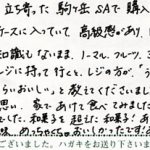 立ち寄った 駒ヶ岳SAで 購入
ケースに入っていて 高級感があり、
知識もないまま、ノーマル、フルーツ、
レジに持って行くと、レジの方が、「う
らおいしい」と教えてくださいまし
思い、家であけて食べてみました
でした。和菓子を超えた和菓子!あ
味、めっちゃくちゃおいしかったです
ございました。ハガキをお送り下さいま